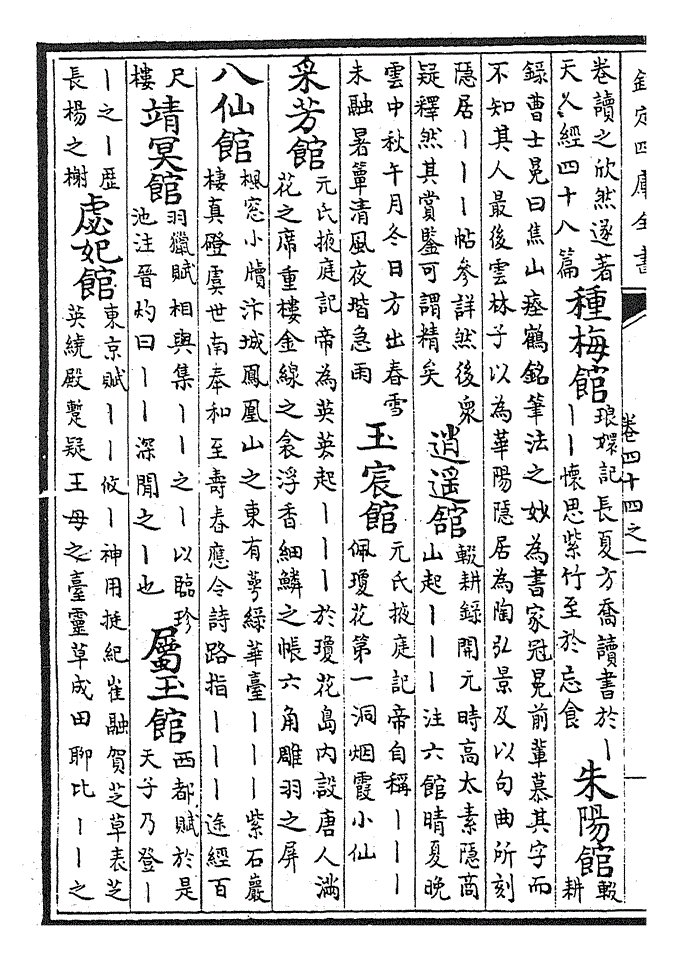 欽定四庫全書
卷四十四之一
卷讀之欣然遂著
天仌經四十八篇
種梅館
琅嬛記長夏方喬讀書於丨
丨丨懷思紫竹至於忘食
朱陽館
輟
耕
錄曹士冕曰焦山瘞鶴銘筆法之妙為書家冠冕前輩慕其字而
不知其人最後雲林子以為華陽隱居為陶弘景及以句曲所刻
隱居丨丨丨帖參詳然後衆
疑釋然其賞鑒可謂精矣
逍遥館
輟耕錄開元時高太素隱商
山起丨丨丨注六館晴夏晚
雲中秋午月冬日方出春雪
未融暑簟清風夜堦急雨
玉宸館
元氏掖庭記帝自稱丨丨丨
佩瓊花第一洞烟霞小仙
采芳館
元氏掖庭記帝為英英起丨丨丨於瓊花島内設唐人滿
花之席重樓金線之衾浮香細鱗之帳六角雕羽之屏
八仙館
楓窓小牘汴城鳳凰山之東有萼綠華臺丨丨丨紫石巖
棲真磴虞世南奉和至壽春應令詩路指丨丨丨途經百
尺
樓
靖冥館
羽獵賦相與集丨丨之丨以臨珍
池注晉灼曰丨丨深閒之丨也
屬玉館
西都賦於是
天子乃登丨
丨之丨歴
長楊之榭
虙妃館
東京賦丨丨攸丨神用挺紀崔融賀芝草表芝
英繞殿蹔疑王母之臺靈草成田聊比丨丨之